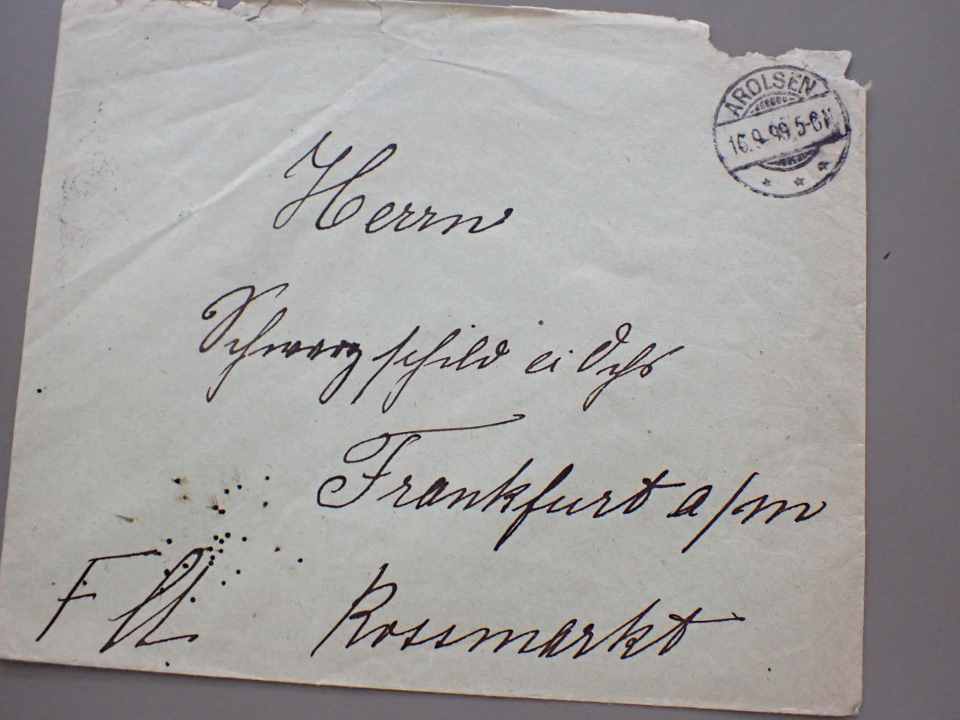 AROLSEN
16.9.99.5-6N
Herrn
Schwarzschild
Frankfurt a/m
Rossmarkt